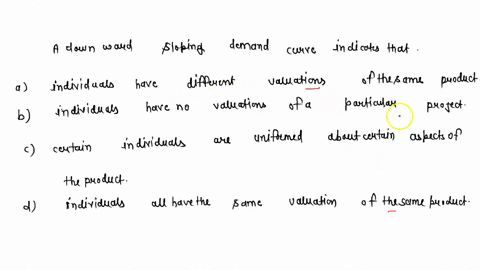 A down ward sloping demand curve indicates that.
a) individuals have different valuations of the same product
b) individuals have no valuations of a particular project.
c) certain individuals are uniformed about certain aspects of
the product.
d) individuals all have the same valuation of the same product.